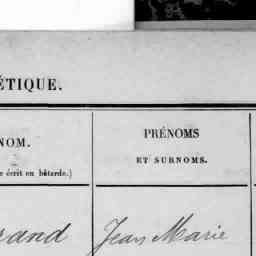 ÉTIQUE.
NOM.
PRÉNOMS
ET SURNOMS.
e écrit en bâtarde.)
rand Jean Marie